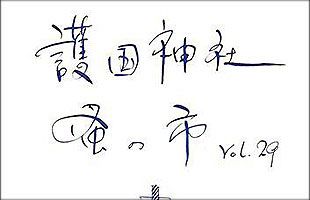 護国神社
蚤の市 vol.29